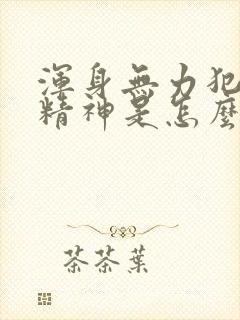 渾身無力犯
精神是怎麼
茶茶葉